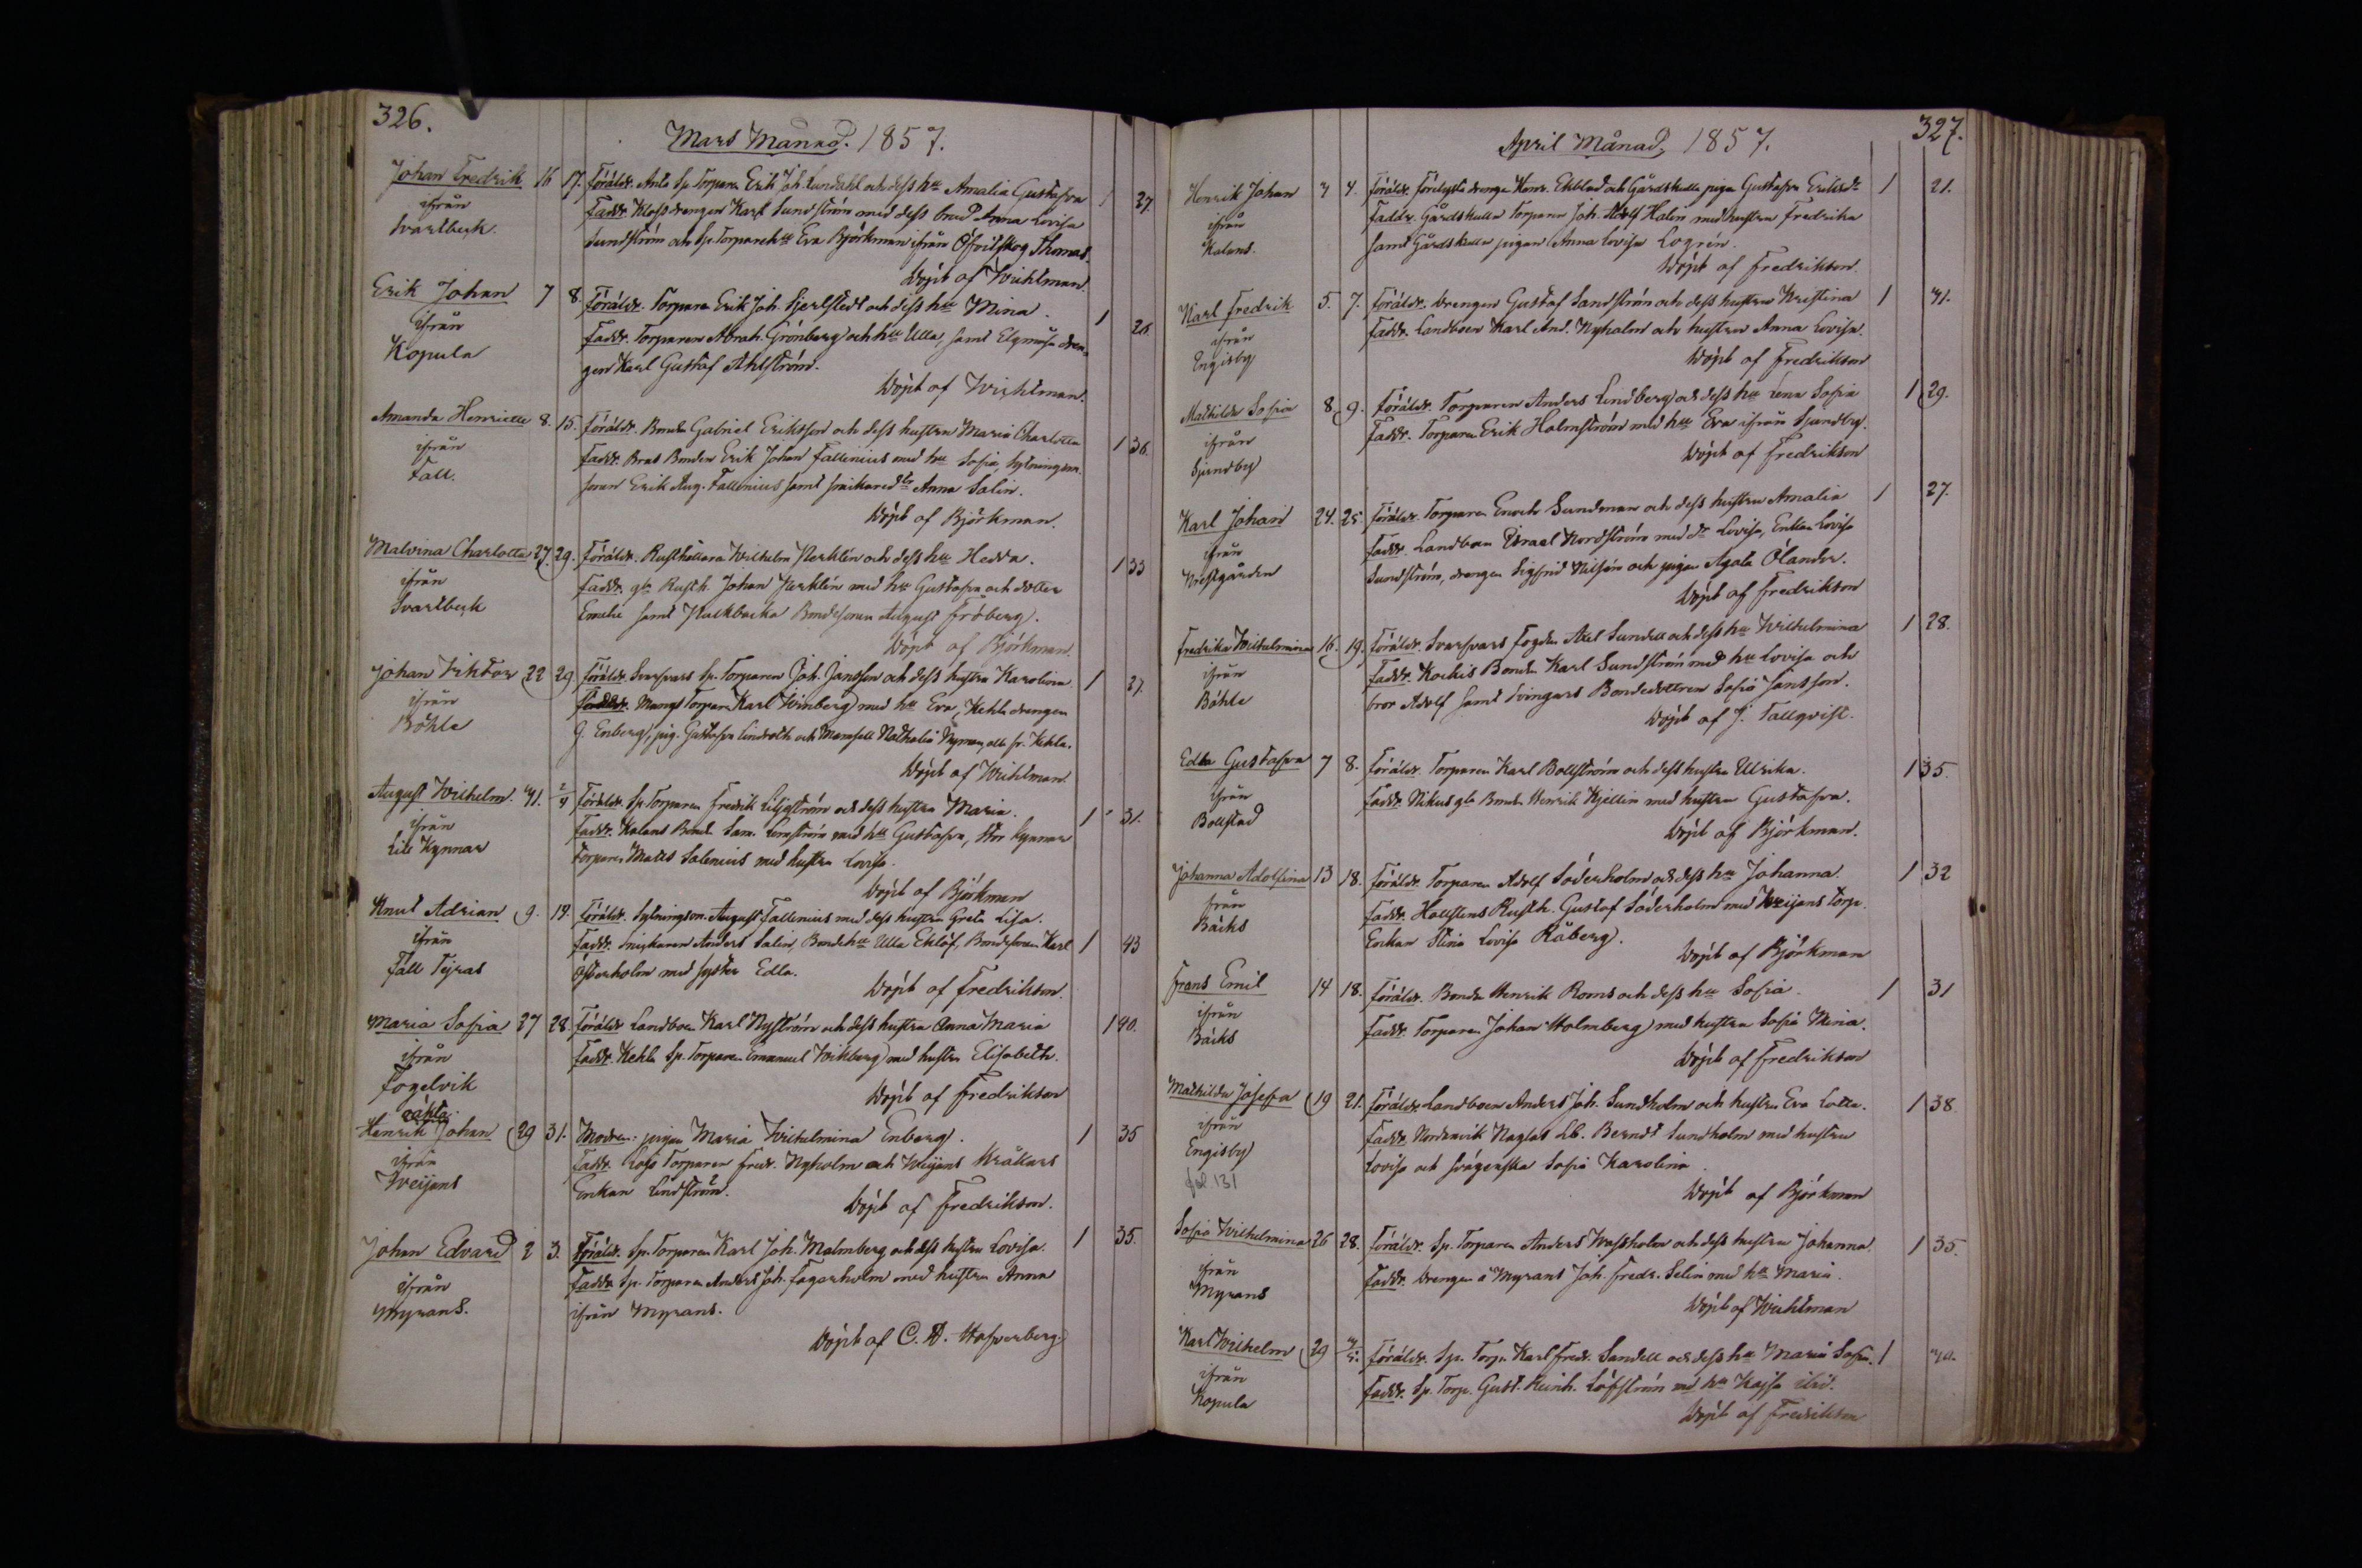 326.
Mars Månad. 1857.
Johan Fredrik 16 17. Föräldr. Ants Sp. Torparn Erik Joh. Lundahl och dess hu Amalia Gustafva 1 27.
ifrån Faddr. Klossdrengen Karl Sundström med dess brud Anna Lovisa
Svartbeck. Sundström och Sp. Torpareh Eva Björkman ifrån Öfvitskog Thomas.
Döpt af Wichtman.
Erik Johan 7 8. Föräldr. Torparen Erik Joh. Hjertstedt och dess hu Mina. 1 26.
ifrån Faddr. Torparen Abrah. Grönberg och hu Ulla, samt Elgmosa dren-
Kopula gen Karl Gustaf Ahlström.
Döpt af Wichtman.
Amanda Henriette 8. 15. Föräldr. Bonden Gabriel Eriksson och dess hustru Maria Charlotta 1 36.
ifrån Faddr. Bonden Erik Johan Fallenius med hu Sofia, Sytningsm.
Fall. sonen Erik Aug. Fallenius samt Anna Salin.
Döpt af Björkman.
Malvina Charlotta 27. 29. Föräldr. Rusthållaren Wilhelm och dess hu Hedda. 1 33
ifrån Faddr. gla Rusth. Johan med hu Gustafva och dotter
Svartbeck Emelie samt Bondesonen August Fröberg.
Döpt af Björkman.
Johan Viktor 22 29 Föräldr. Svarfvars Sp. Torparen Joh. Jansson och dess hustru Karolina 1 27.
ifrån Faddr. Mangs Torparen Karl Winberg med hu Eva, Kehla drengen
Böhle G. Enberg, pig. Gustafva Lindroth och Mamsell Nathalia Nyman, alla fr. Kehla.
Döpt af Wichtman.
August Wilhelm. 31. 2/4 Föräldr. Sp. Torparen Fredrik Liljeström och dess hustru Maria. 1 31.
ifrån Faddr. Kalans Bond. Sam. Lemström med hu Gustafva, Stor Kynnar
Lill Kynnar Torparen Matts Salenius med hustru Lovisa.
Döpt af Björkman
Knut Adrian 9. 19. Föräldr. Sytningsm. August Fallenius med dess hustru Greta Lisa.
ifrån Faddr. snickaren Anders Salin, Bondehu Ulla Eklöf, Bondesonen Karl 1 43
Fall Tyras Österholm med syster Edla.
Döpt af Fredrikson.
Maria Sofia 27 28. Föräldr Landboen Karl Nyström och dess hustru Anna Maria 1 40.
ifrån Faddr. Kehla Sp. Torparen Emanuel Wikberg med hustru Elisabeth.
Fogelvik
Döpt af Fredrikson
oäkta
Henrik Johan 29 31. Modren: pigan Maria Wilhelmina Enberg. 1 35
ifrån Faddr. Torparen Fredr. Nyholm och Weijans
Weijans Enkan Lindström.
Döpt af Fredrikson.
Johan Edvard 2 3. Föräldr. Sp. Torparen Karl Joh. Malmberg och dess hustru Lovisa. 1 35.
ifrån Faddr Sp. Torparen Anders Joh. Fagerholm med hustru Anna
Myrans. ifrån Myrans.
Döpt af C. A. Hofverberg.
327.
April Månad, 1857.
Henrik Johan 3 4. Föräldr. drengen Konr. Ekblad och Gårdskulla pigan Gustafva Eriksdr 1 21.
ifrån Faddr. Gårdskulla Torparen Joh. Adolf Halin med hustru Fredrika
Kalans. samt Gårdskulla pigan Anna Lovisa Logrén.
Döpt af Fredrikson.
Karl Fredrik 5. 7. Föräldr. drengen Gustaf Sandström och dess hustru Kristina 1 31.
ifrån Faddr. Landboen Karl And. Nyholm och hustrun Anna Lovisa.
Engisby
Döpt af Fredrikson
Mathilda Sofia 8. 9. Föräldr. Torparen Anders Lindberg och dess hu Lena Sofia 1 29.
ifrån Faddr. Torparen Erik Holmström med hu Eva ifrån Sjundby.
Sjundby
Döpt af Fredrikson
Karl Johan 24. 25. Föräldr. Torparen Enoch Sundman och dess hustru Amalia 1 27.
ifrån Faddr. Landboen Israel Nordström med dr Lovisa, Enkan Lovisa
Prestgården Sundström, drengen Sigfrid Nilsén och pigan Agata Ölander.
Döpt af Fredrikson
Fredrika Wilhelmina 16. 19. Föräldr. Svarfvars Fogden Axel Sundell och dess hu Wilhelmina 1 28.
ifrån Faddr. Kockis Bonden Karl Sundström med hu Lovisa och
Böhle bror Adolf samt Svingars Bondedottren Sofia Jansson.
Döpt af J. Tallqvist.
Edla Gustafva 7 8. Föräldr. Torparen Karl Bollström och dess hustru Ulrika. 1 35.
ifrån Faddr. Nikus gla Bond. Henrik Kjellin med hustru Gustafva.
Bollstad
Döpt af Björkman.
Johanna Adolfina 13 18. Föräldr. Torparen Adolf Söderholm och dess hu Johanna. 1 32
från Faddr. Hollstens Rusth. Gustaf Söderholm med Weijans torp.
Bäcks Enkan Stina Lovisa Råberg.
Döpt af Björkman
Frans Emil 14 18. Föräldr. Bonden Henrik Roms och dess hu Sofia. 1 31
ifrån Faddr. Torparen Johan Holmberg med hustru Sofia Mina.
Bäcks
Döpt af Fredrikson
Mathilda Josefa 19 21. Föräldr Landboen Anders Joh. Sundholm och hustru Eva Lotta. 1 38.
ifrån Faddr. Nordanvik Naglas Lb. Berndt Sundholm med hustru
Engisby Lovisa och svägerska Sofia Karolina.
fol. 131
Döpt af Björkman
Sofia Wilhelmina 26 28. Föräldr. Sp. Torparen Anders Wassholm och dess hustru Johanna. 1 35.
ifrån Faddr. Drengen å Myrans Joh. Fredr. Selin med hu Maria.
Myrans
Döpt af Wichtman
Karl Wilhelm 29 3/5. Föräldr. Sp. Torp. Karl Fredr. Sandell och dess hu Maria Sofia. 1 30.
ifrån Faddr. Sp. Torp. Gust. Reinh. Löfström med hu Kajsa ibid.
Kopula
Döpt af Fredrikson